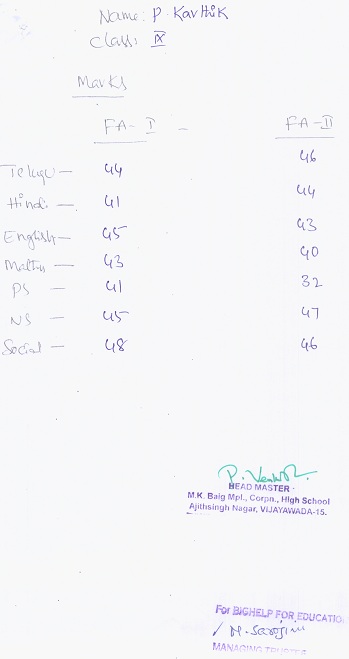 Name: P Karthik
Class: IX
Marks
FA-I - FA-II
Telugu - 44 46
Hindi - 41 44
English - 45 43
Maths - 43 40
PS - 41 32
NS - 45 47
Social - 48 46
HEAD MASTER
M.K. Baig Mpl., Corpn., High School
Ajithsingh Nagar, VIJAYAWADA-15.
For BIGHELP FOR EDUCATION
M. Sarojini
MANAGING TRUSTEE